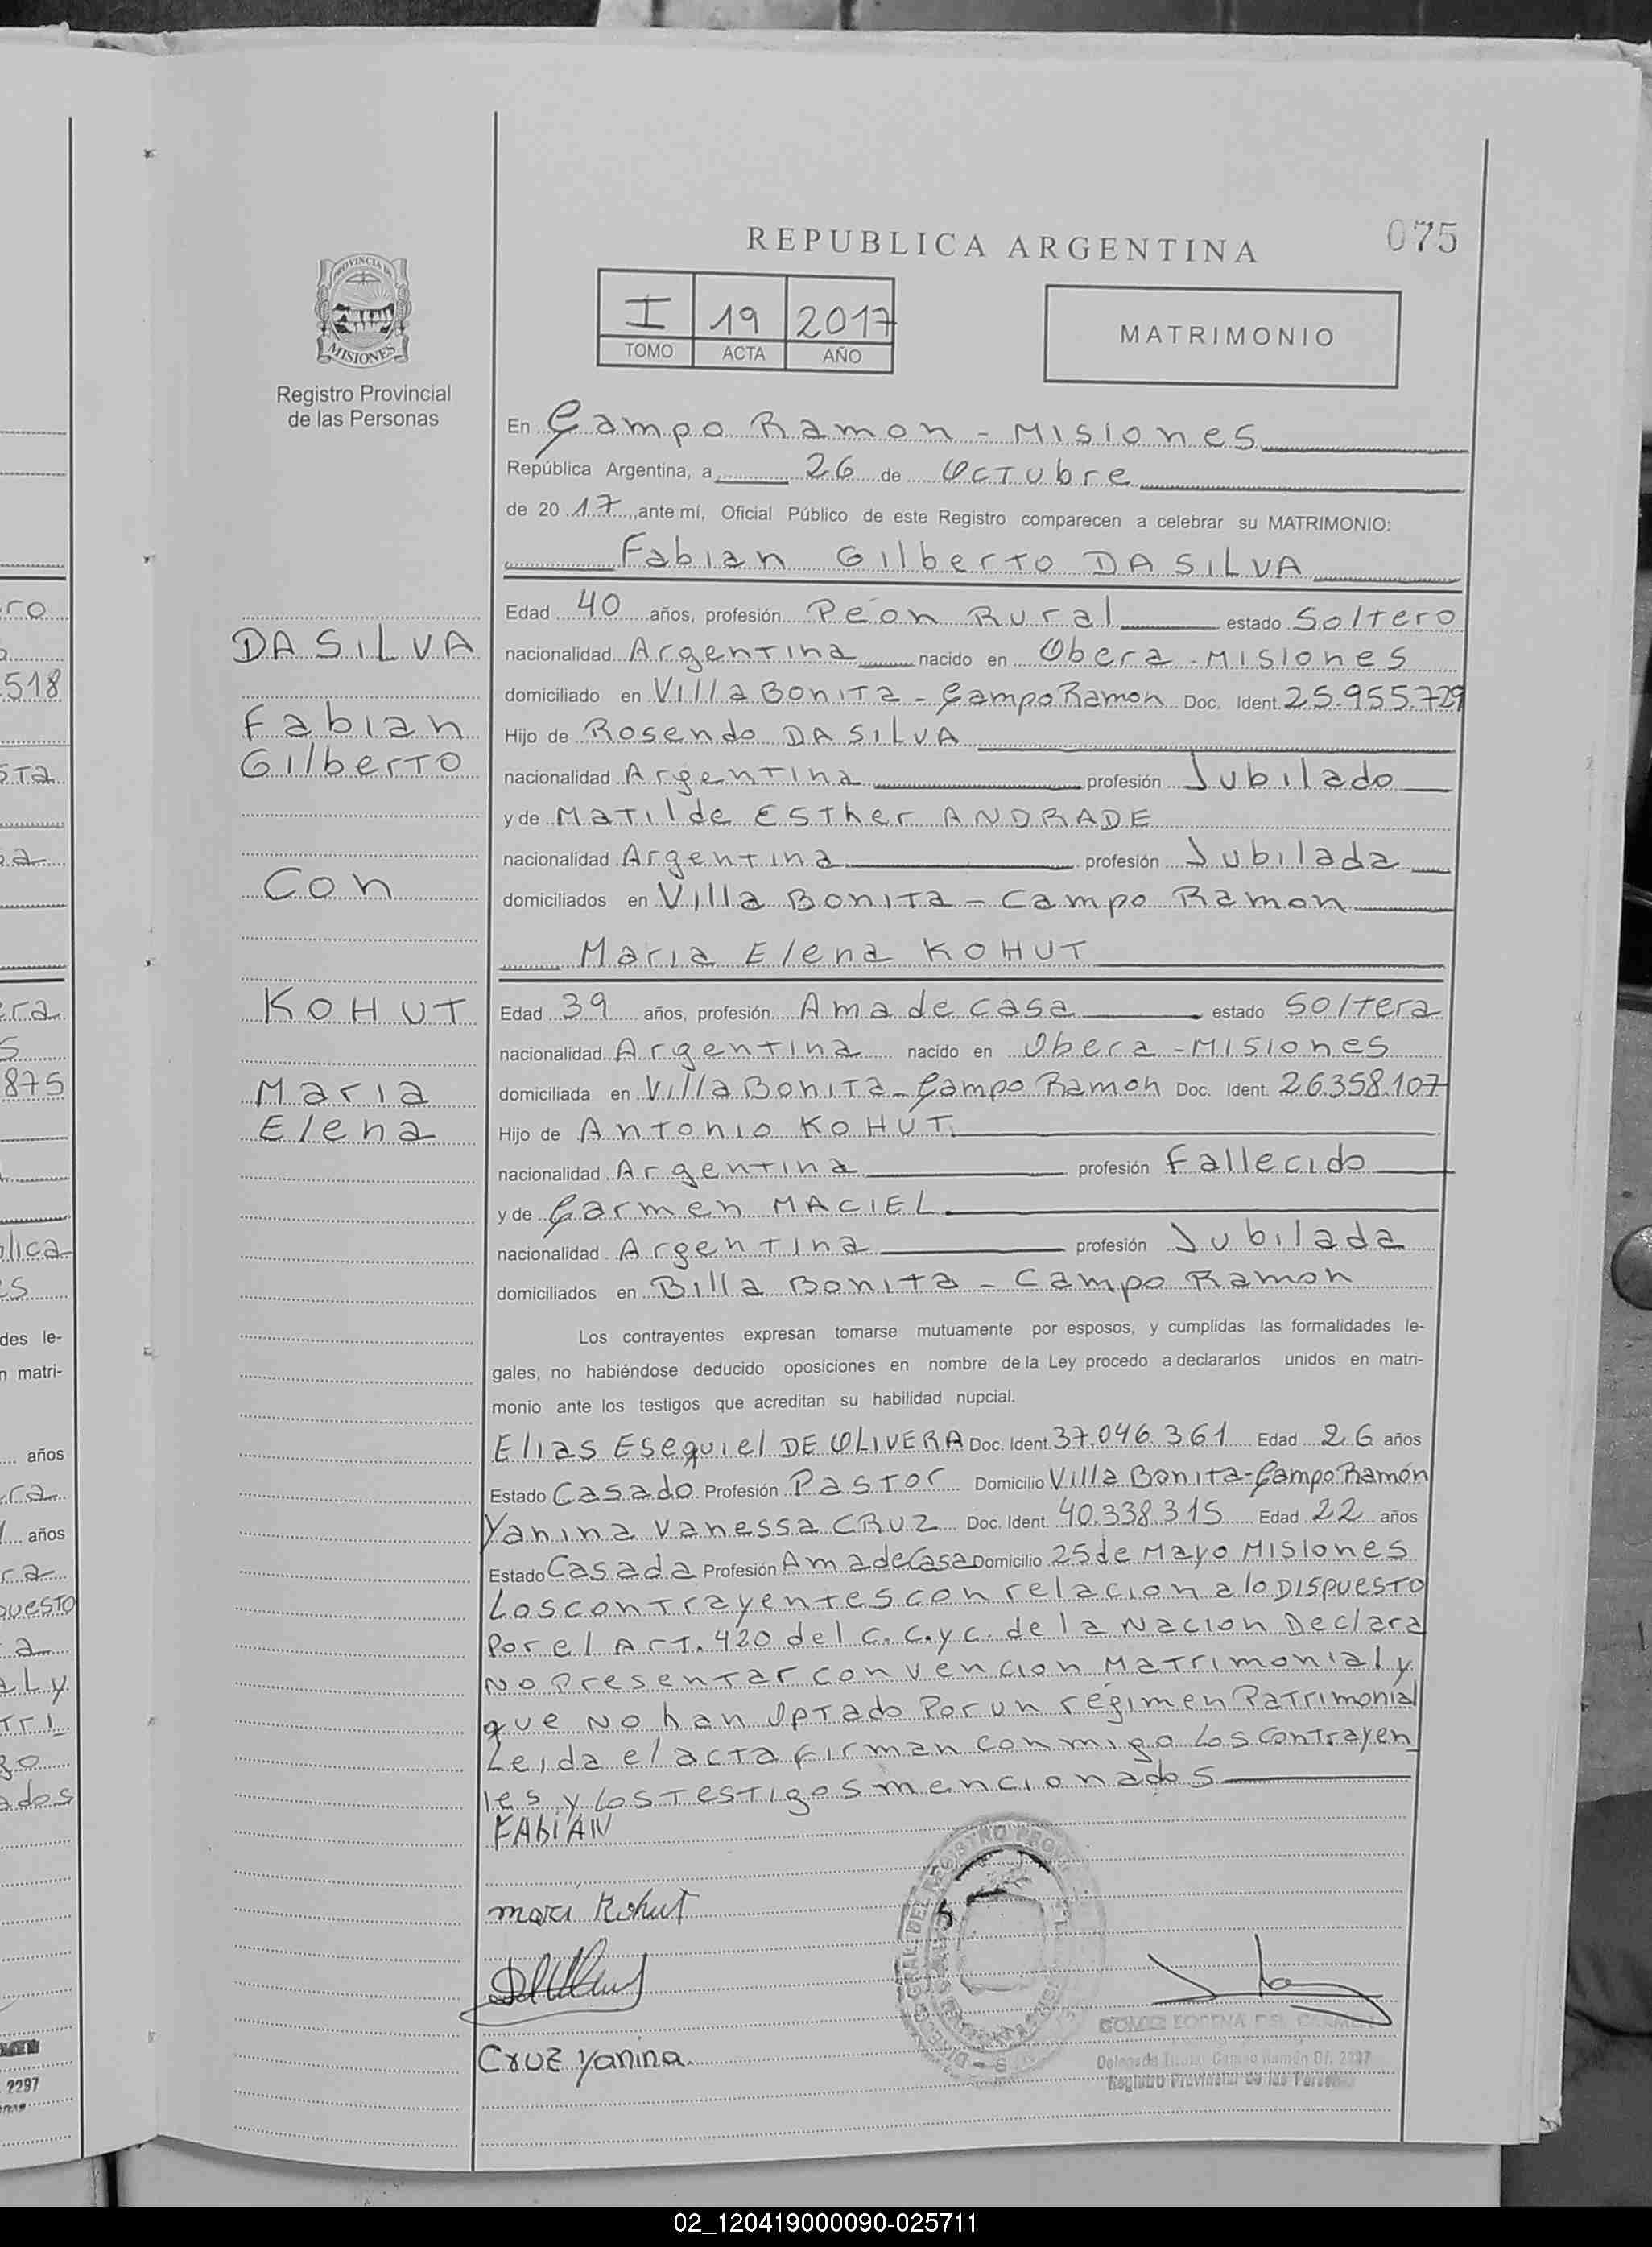 075
REPUBLICA ARGENTINA
PROVINCIA DE
MISIONES
Registro Provincial
de las Personas
I 19 2017
TOMO ACTA AÑO
MATRIMONIO
En Campo Ramon - Misiones
República Argentina, a 26 de Octubre
de 20 17, ante mí, Oficial Público de este Registro comparecen a celebrar su MATRIMONIO:
Fabian Gilberto DA SILVA
Edad 40 años, profesión Peón Rural estado Soltero
nacionalidad Argentina nacido en Obera - Misiones
domiciliado en Villa Bonita - Campo Ramon Doc. Ident. 25.955.729
Hijo de Rosendo DA SILVA
nacionalidad Argentina profesión Jubilado
y de Matilde Esther ANDRADE
nacionalidad Argentina profesión Jubilada
domiciliados en Villa Bonita - Campo Ramon
Maria Elena KOHUT
Edad 39 años, profesión Ama de casa estado Soltera
nacionalidad Argentina nacido en Obera - Misiones
domiciliada en Villa Bonita - Campo Ramon Doc. Ident. 26.358.107
Hijo de Antonio KOHUT.
nacionalidad Argentina profesión Fallecido
y de Carmen MACIEL
nacionalidad Argentina profesión Jubilada
domiciliados en Billa Bonita - Campo Ramon
DA SILVA
Fabian
Gilberto
Con
KOHUT
Maria
Elena
Los contrayentes expresan tomarse mutuamente por esposos, y cumplidas las formalidades le-
gales, no habiéndose deducido oposiciones en nombre de la Ley procedo a declararlos unidos en matri-
monio ante los testigos que acreditan su habilidad nupcial.
Elias Esequiel DE OLIVERA Doc. Ident. 37.046.361 Edad 26 años
Estado Casado Profesión Pastor Domicilio Villa Bonita - Campo Ramón
Yanina Vanessa CRUZ Doc. Ident. 40.338.315 Edad 22 años
Estado Casada Profesión Ama de Casa Domicilio 25 de Mayo Misiones
Los contrayentes con relacion a lo Dispuesto
Por el Art. 420 del C. C. y C. de la Nacion Declara
No Presentar convencion Matrimonial y
que No han Optado Por un régimen Patrimonial
Leida el acta firman conmigo Los Contrayen
tes y Los Testigos mencionados
FAbiAN
Kohut
CRUZ Yanina.
DEL CARMEN
Campo Ramón Of. 2297
Registro Provincial de las Personas
ro
518
sta
era
875
lica
es
des le-
n matri-
años
años
puesto
al y
tri
ados
2297
02_120419000090-025711